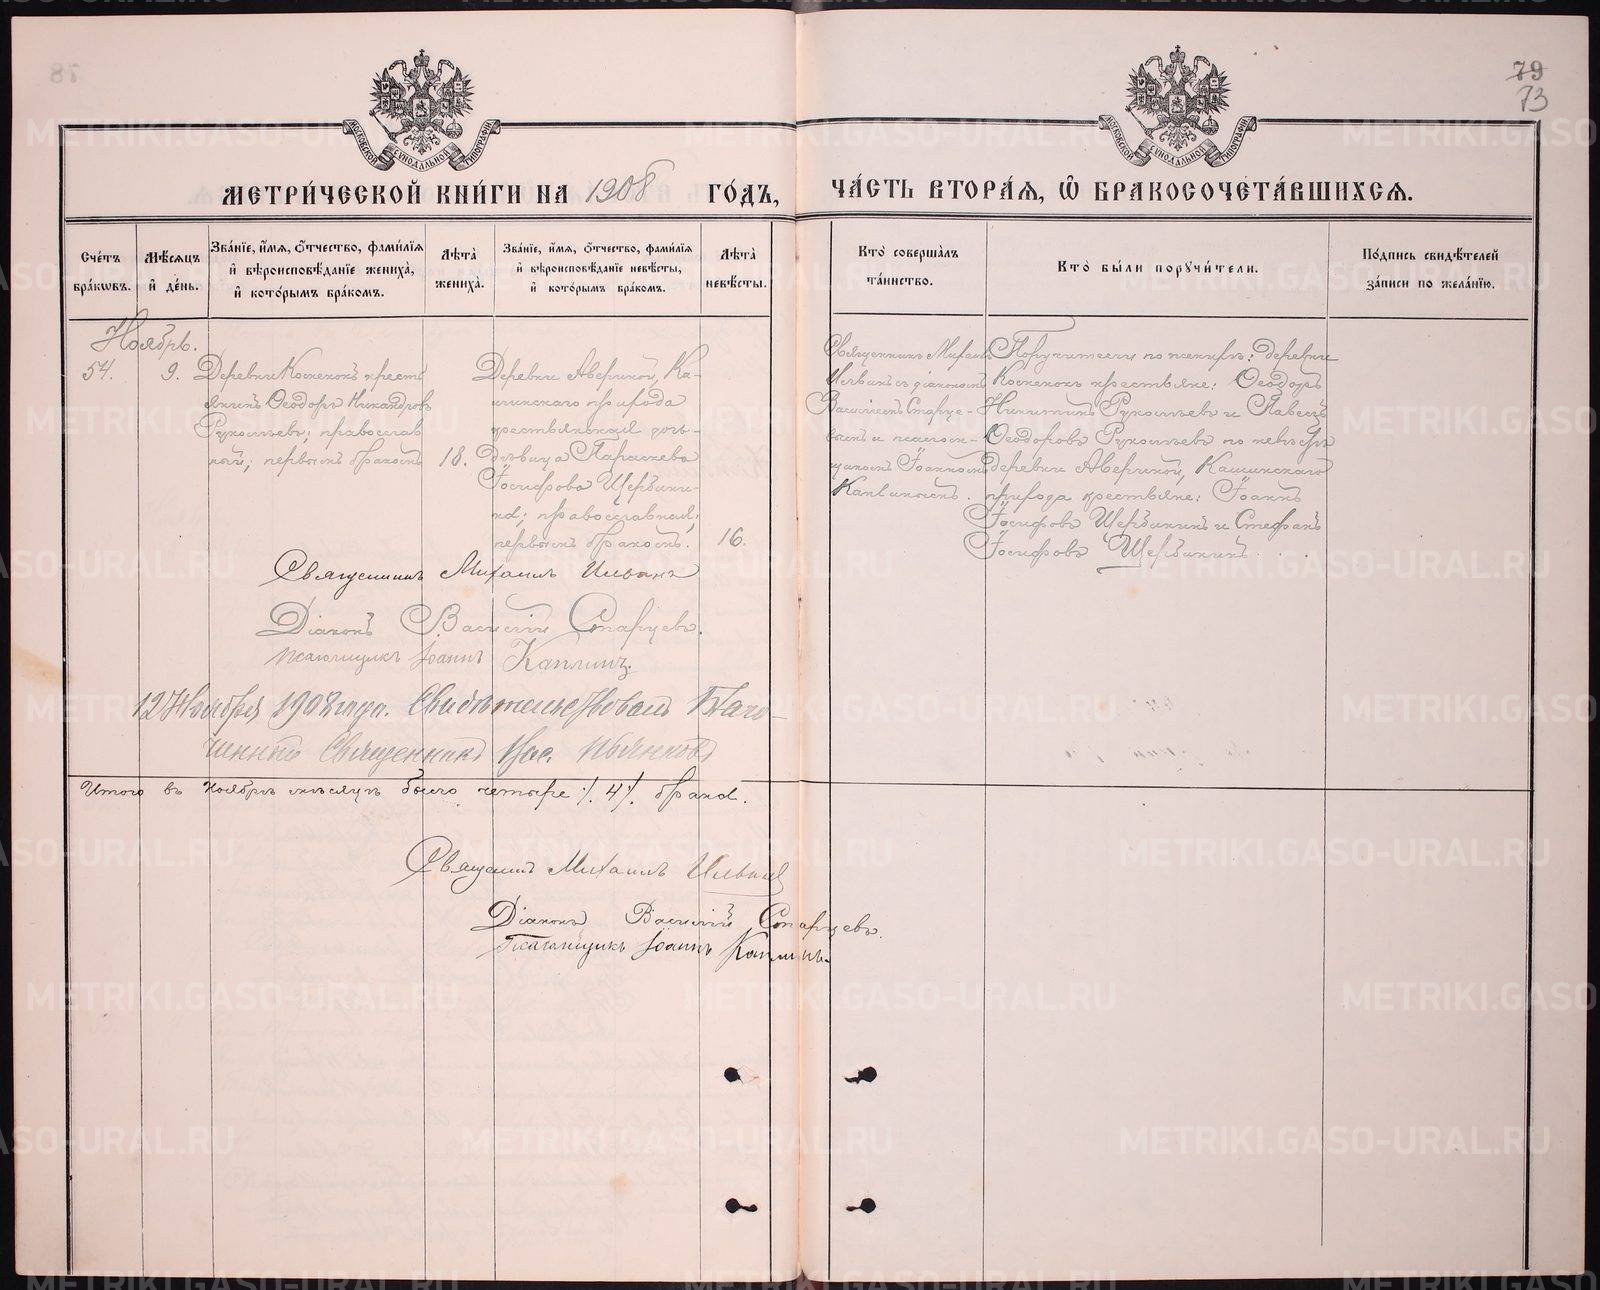 79
73
МОСКОВСКОЙ СѴНОДАЛЬНОЙ ТИПОГРАФІИ
МОСКОВСКОЙ СѴНОДАЛЬНОЙ ТИПОГРАФІИ
МЕТРИ́ЧЕСКОЙ КНИ́ГИ НА 1908 ГО́ДЪ,
ЧА́СТЬ ВТОРА́Я, Ѽ БРАКОСОЧЕТА́ВШИХСЯ.
Сче́тъ бра́ковъ.
Мѣ́сяцъ и҆ де́нь.
Зва́нїе, и҆́мя, ѻ҆́тчество, фами́лїя и҆ вѣроисповѣ́данїе жениха̀, и҆ кото́рымъ бра́комъ.
Лѣта̀ жениха̀.
Зва́нїе, и҆́мя, ѻ҆́тчество, фами́лїя и҆ вѣроисповѣ́данїе невѣ́сты, и҆ кото́рымъ бра́комъ.
Лѣта̀ невѣ́сты.
Кто̀ соверша́лъ та́инство.
Кто̀ бы́ли порꙋчи́тели.
По́дпись свидѣ́телей за́писи по жела́нїю.
Ноябрь.
54.
9.
Деревни
кресть
янинъ Ѳеодоръ Никандровъ
православ
ный; первымъ бракомъ
18.
Деревни Авериной, Ка-
шинскаго прихода
крестьянская дочь
дѣвица Параскева
Іосифова Щербини-
на; православная;
первымъ бракомъ.
16.
Священникъ Михаилъ
съ діакономъ
Василіемъ Старце-
вымъ и псалом-
щикомъ Іоанномъ
Каплинымъ.
Поручители по женихѣ: деревни
крестьяне: Ѳеодоръ
Никитинъ и Павелъ
Ѳеодоровъ по невѣстѣ
деревни Авериной, Кашинскаго
прихода крестьяне: Іоаннъ
Іосифовъ Щербининъ и Стефанъ
Іосифовъ Щербининъ.
Священникъ Михаилъ
Діаконъ Василій Старцевъ.
Псаломщикъ Іоаннъ Каплинъ.
12 Ноября 1908 года. Свидѣтельствовалъ Благо-
чинный Священникъ
Итого въ Ноябрѣ мѣсяцѣ было четыре /. 4 /. брака.
Священникъ Михаилъ
Діаконъ Василій Старцевъ.
Псаломщикъ Іоаннъ Каплинъ.
METRIKI.GASO-URAL.RU